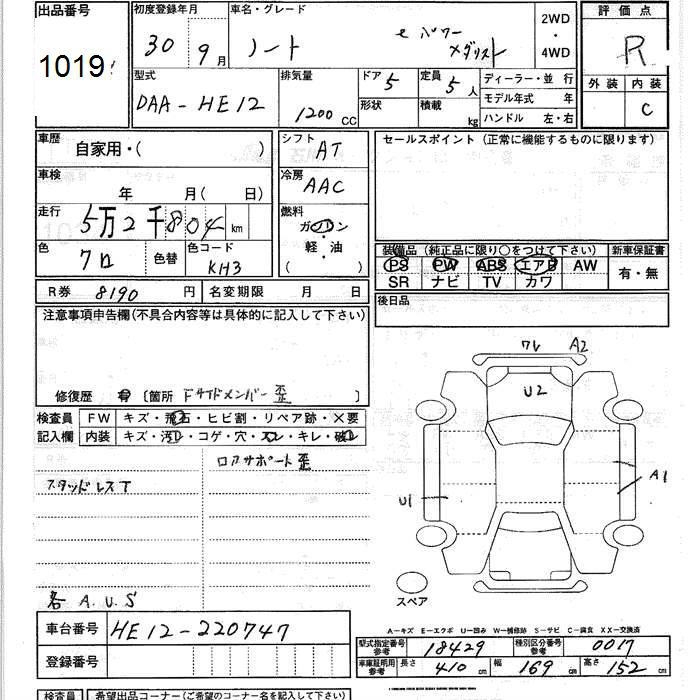 出品番号 1019
初度登録年月 30年 9月
車名・グレード ノート e パワー メダリスト
2WD・4WD
評価点 R
外装 内装 C
型式 DAA-HE12
排気量 1200 CC
ドア 5 定員 5人
形状 積載 kg
ディーラー・並 行
モデル年式 年
ハンドル 左・右
車歴 自家用・( )
シフト AT
車検 年 月( 日)
冷房 AAC
走行 5万2千804 km
燃料 ガソリン・軽・油 ( )
色 クロ 色替 色コード KH3
R券 8190 円 名変期限 月 日
セールスポイント(正常に機能するものに限ります)
装備品(純正品に限り○をつけて下さい) 新車保証書
PS PW ABS エアB AW 有・無
SR ナビ TV カワ
後日品
注意事項申告欄(不具合内容等は具体的に記入して下さい)
修復歴 有 〔箇所 Fサイドメンバー歪 〕
検査員記入欄
FW キズ・飛石・ヒビ割・リペア跡・×要
内装 キズ・汚レ・コゲ・穴・スレ・キレ・破レ
ロアサポート歪
スタッドレスT
各 A.U.S
ワレ A2
U2
U1
A1
スペア
A-キズ E-エクボ U-凹み W-補修跡 S-サビ C-腐食 XX-交換済
車台番号 HE12-220747
登録番号
型式指定番号参考 18429 種別区分番号参考 0017
車庫証明用参考 長さ 410 cm 幅 169 cm 高さ 152 cm
検査員 希望出品コーナー(ご希望のコーナー名を記入して下さい)